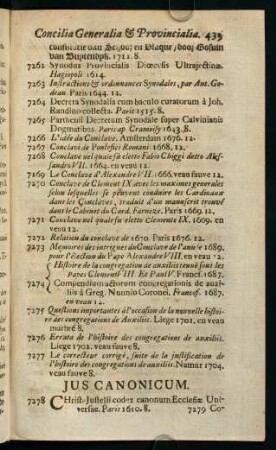 Concilia Generalia & Provincialia. 439
van Buytendyk. 1712. 8.
7262 Synodus Provincialis Diœcesis Ultrajectinæ
Hagiopoli 1614.
7263 Instructions & ordonnances Synodales, par Ant. Go-
deau. Paris 1644. 12.
7264 Decreta Synodalia cum baculo curatorum à Joh.
Randino collecta. Paris 1515. 8.
7265 Patticheul Decretum Synodale super Calvinianis
Dogmatibus. Paris ap. Cramoisy 1643. 8.
7266 L'idée du Conclave. Amsterdam 1676. 12.
7267 Conclave de Pontefici Romani 1668. 12.
7268 Conclave nel quale fu eletto Fabio Chiggi detto Ales-
sandro VII. 1664. en veau 12.
7269 Le Conclave d'Alexandre VII. 1666. veau fauve 12.
7270 Conclave de Clement IX avec les maximes generales
selon lesquelles se peuvent conduire les Cardinaux
dans les Conclaves, traduit d'un manuscrit trouvé
dans le Cabinet du Card. Farneze. Paris 1669. 12.
7271 Conclave nel quale fu eletto Clemente IX. 1669. en
venu 12.
7272 Relation du conclave de 1670. Paris 1676. 12.
7273 Memoires des intrigues du Conclave de l'année 1689.
pour l'élection du Pape Alexandre VIII. en veau 12.
Histoire de la congregation de auxiliis tenuë sous les
Papes Clement VIII. Et Paul V. Francf. 1687.
7274 Compendium actorum congregationis de auxi-
liis à Greg. Nunnio Coronel. Francof. 1687.
en veau 12.
7275 Questions importantes à l'occasion de la nouvelle histoi-
re des congregations de Auxiliis. Liege 1701. en veau
marbré 8.
7276 Errata de l'histoire des congregations de auxiliis.
Liege 1702. veau fauve 8.
7277 Le correcteur corrigé, suite de la justification de
l'histoire des congregations de auxiliis. Namur 1704.
veau fauve 8.
JUS CANONICUM.
7278 Christ. Justelli codex canonum Ecclesiæ Uni-
versæ. Paris 1610. 8. 7279 Co-